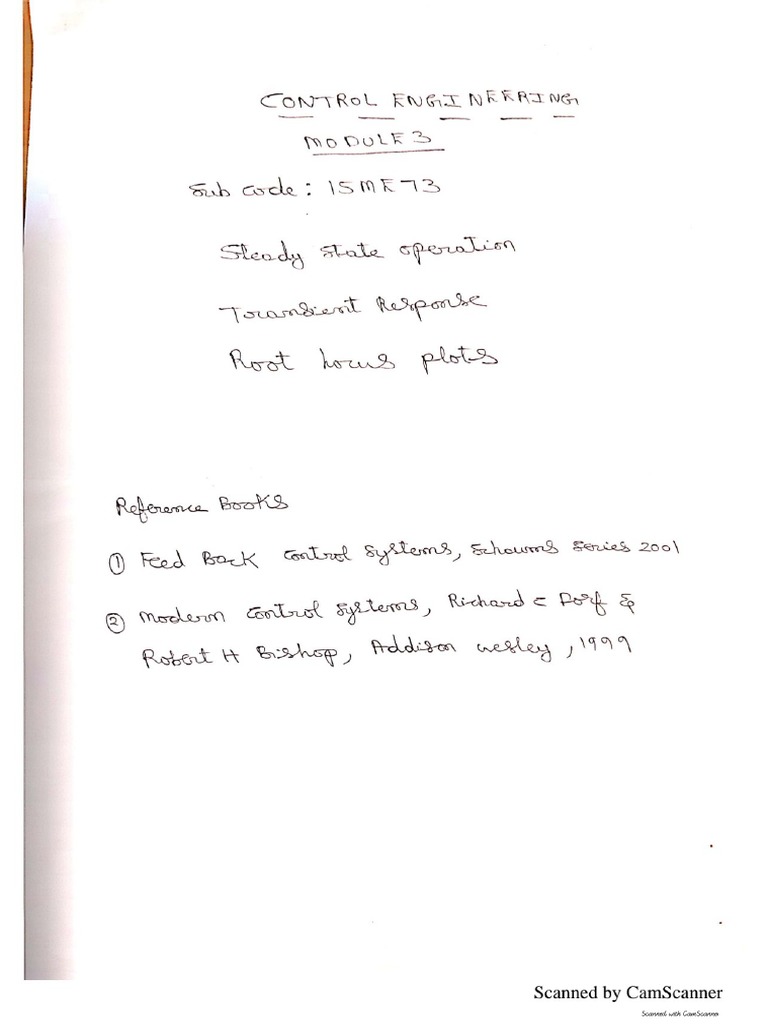 CONTROL ENGINEERING
MODULE 3
Sub code: 15ME73
Steady state operation
Transient Response
Root Locus plots
Reference Books
① Feed Back control systems, Schaums series 2001
② Modern control systems, Richard C Dorf &
Robert H Bishop, Addison wesley, 1999
Scanned by CamScanner
Scanned with CamScanner